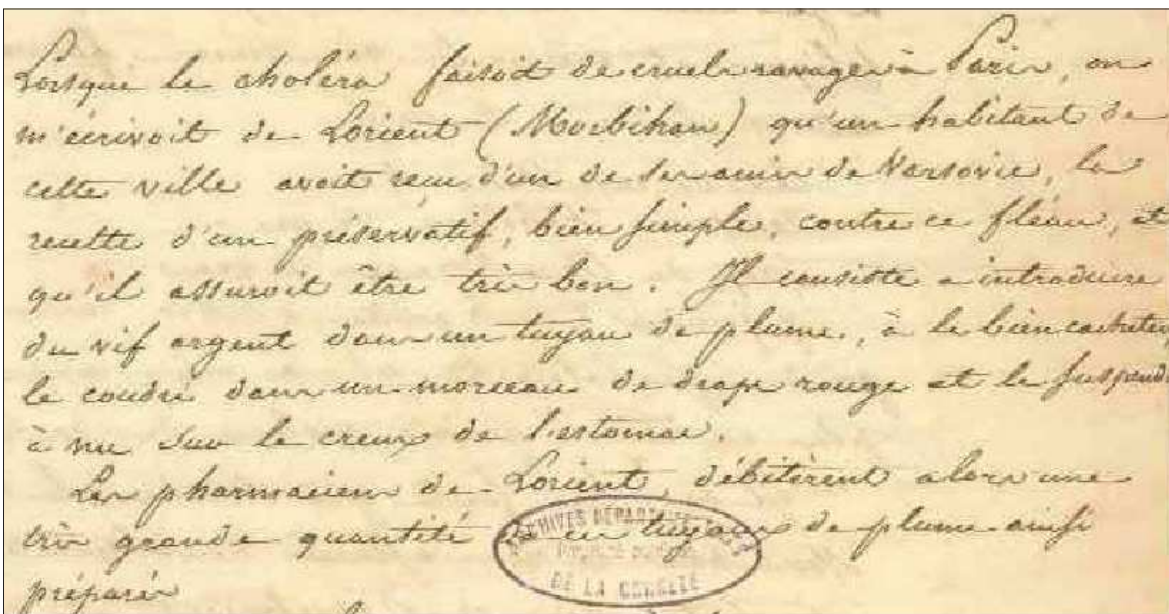 Lorsque le choléra faisoit de cruels ravages à Paris, on
m'écrivoit de Lorient (Morbihan) qu'un habitant de
cette ville avoit reçu d'un de ses amis de Varsovie, la
recette d'un préservatif, bien simple, contre ce fléau, et
qu'il assuroit être très bon. Il consiste a introduire
du vif argent dans un tuyau de plume, à le bien cacheter,
le coudre dans un morceau de drap rouge et le suspendre
à nu sur le creux de l'estomac.
Les pharmaciens de Lorient, débitèrent alors une
très grande quantité de ces tuyaux de plume ainsi
préparés
ARCHIVES DÉPARTEMENTALES
DE LA CORRÈZE